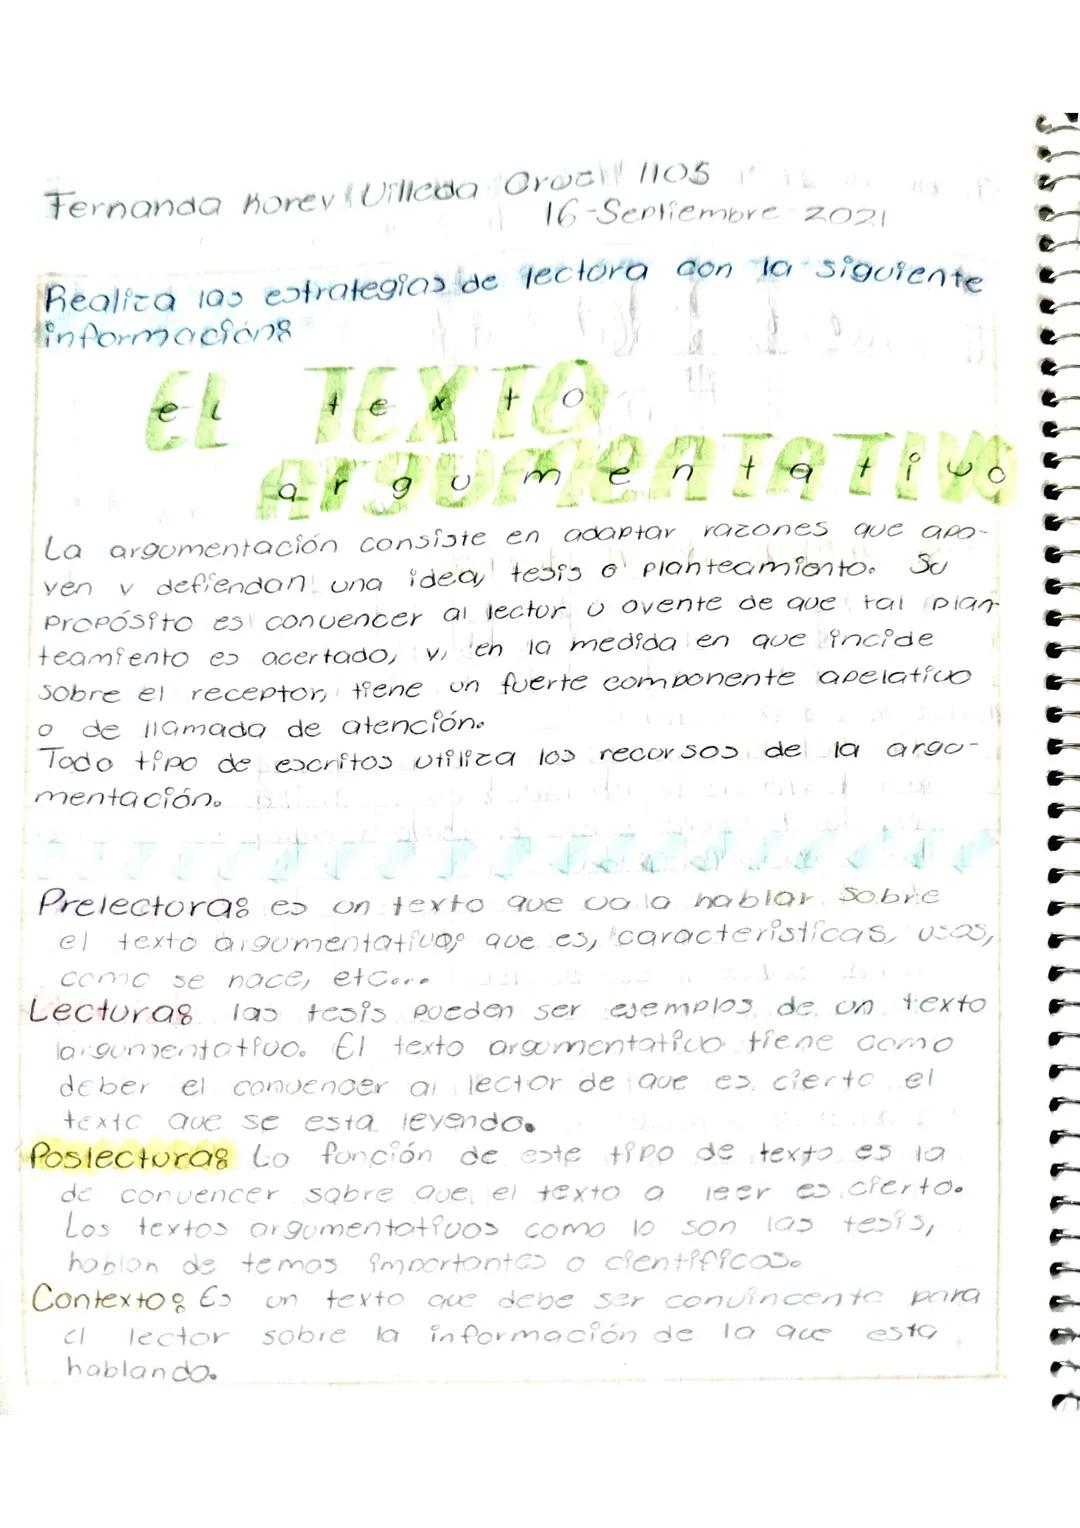 Fernanda Korev Villeda 1105
16-Septiembre-2021
Realiza las estrategias de lectura con la siguiente
información:
EL TEXTO
el texto
ARGUMENTATIVO
argumentativo
La argumentación consiste en adaptar razones que apo-
yen y defiendan una idea, tesis o planteamiento. Su
propósito es convencer al lector u oyente de que tal plan-
teamiento es acertado, y, en la medida en que incide
sobre el receptor, tiene un fuerte componente apelativo
o de llamada de atención.
Todo tipo de escritos utiliza los recursos de la argu-
mentación.
Prelectura: es un texto que va a hablar sobre
el texto argumentativo, que es, características, usos,
como se hace, etc...
Lectura: las tesis pueden ser ejemplos de un texto
argumentativo. El texto argumentativo tiene como
deber el convencer al lector de que es cierto el
texto que se esta leyendo.
Poslectura: La función de este tipo de texto es la
de convencer sobre que el texto a leer es cierto.
Los textos argumentativos como lo son las tesis,
hablan de temas importantes o cientificos.
Contexto: Es un texto que debe ser convincente para
el lector sobre la información de la que esta
hablando.